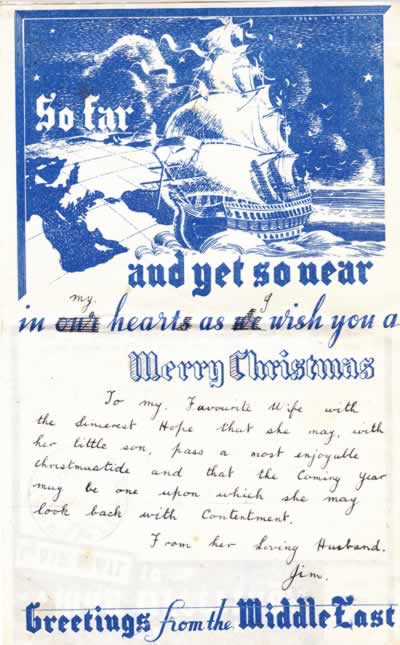 So far
and yet so near
my I
in our hearts as we wish you a
Merry Christmas
To my Favourite Wife with
the Sincerest Hope that she may, with
her little son, pass a most enjoyable
christmastide and that the Coming Year
may be one upon which she may
look back with Contentment.
From her Loving Husband.
Jim.
Greetings from the Middle East